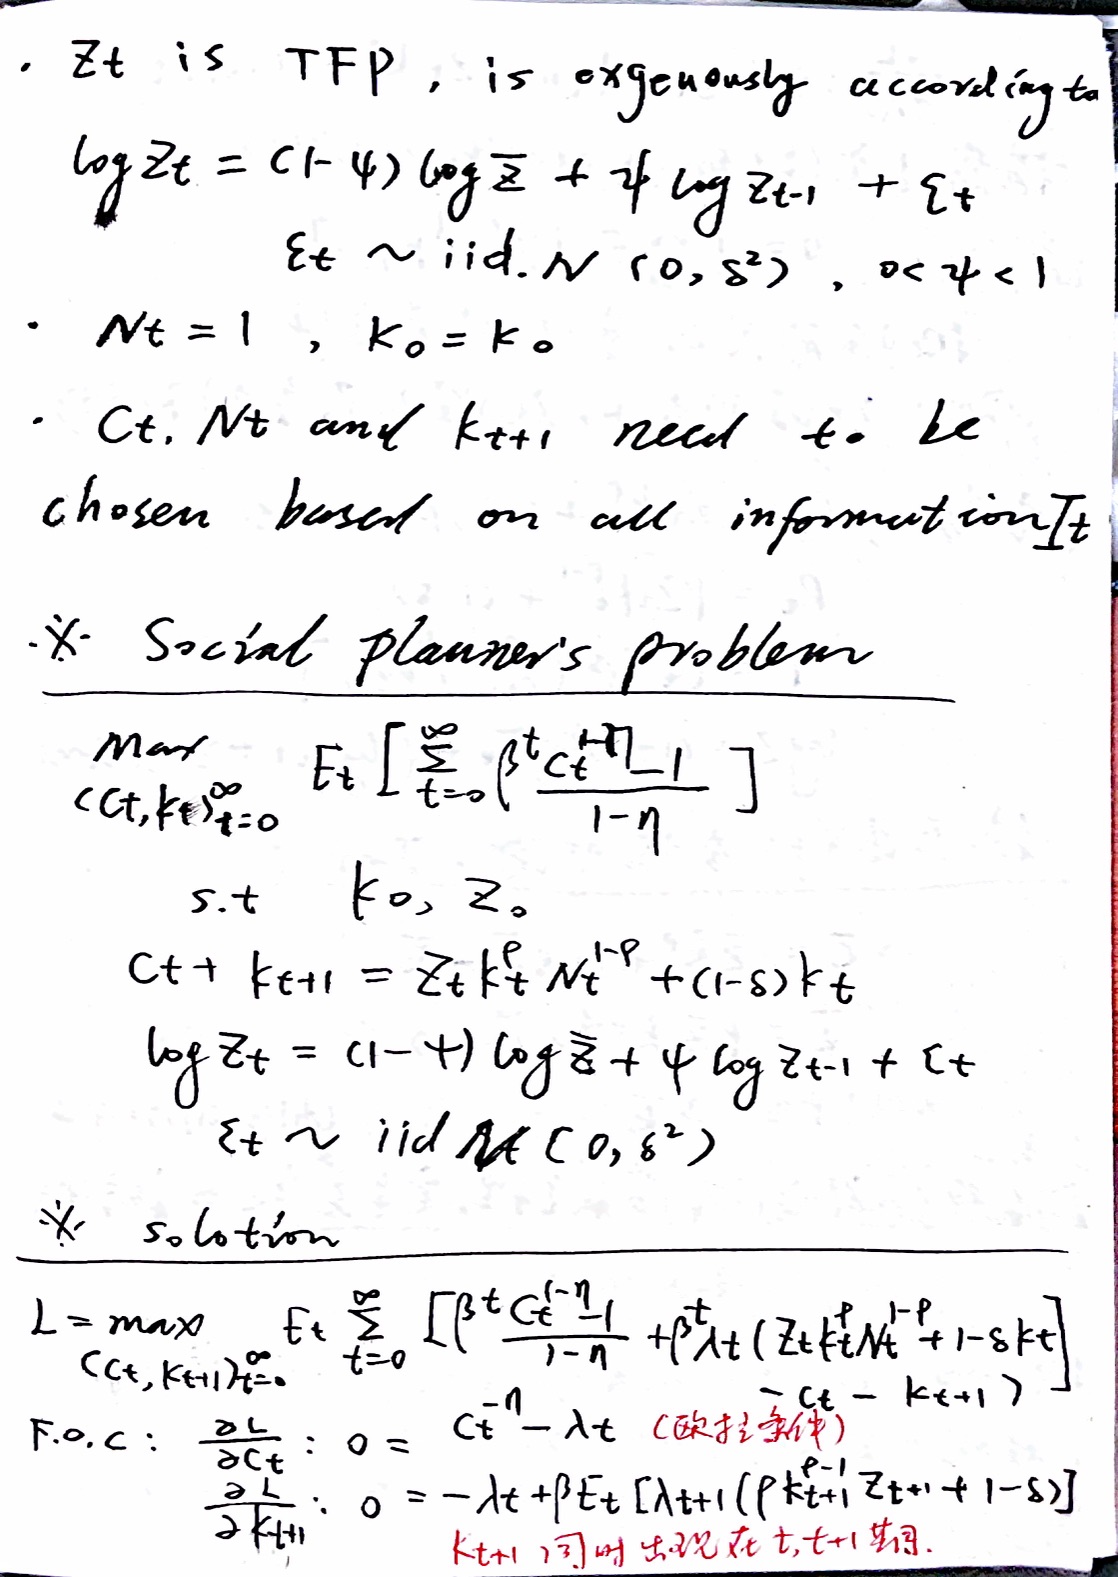 · Zt is TFP, is exgenously according to
log Zt = (1-ψ) log z̄ + ψ log Zt-1 + εt
εt ~ iid. N (0, δ²), 0<ψ<1
· Nt = 1, K0 = k0
· Ct, Nt and kt+1 need to be
chosen based on all information It
※ Social planner's problem
Max (Ct, kt)∞t=0 Et [ ∑∞t=0 β^t (Ct^(1-η) - 1)/(1-η) ]
s.t k0, Z0
Ct + kt+1 = Zt kt^ρ Nt^(1-ρ) + (1-δ) kt
log Zt = (1-ψ) log z̄ + ψ log Zt-1 + εt
εt ~ iid N (0, δ²)
※ solotion
L = max (Ct, Kt+1)∞t=0 Et ∑∞t=0 [β^t (Ct^(1-η) - 1)/(1-η) + β^t λt (Zt kt^ρ Nt^(1-ρ) + 1-δ kt
- Ct - kt+1)]
F.O.C: ∂L/∂Ct : 0 = Ct^-η - λt (欧拉条件)
∂L/∂Kt+1 : 0 = -λt + βEt [λt+1 (ρ kt+1^(ρ-1) Zt+1 + 1-δ)]
kt+1 同时出现在 t, t+1 期.